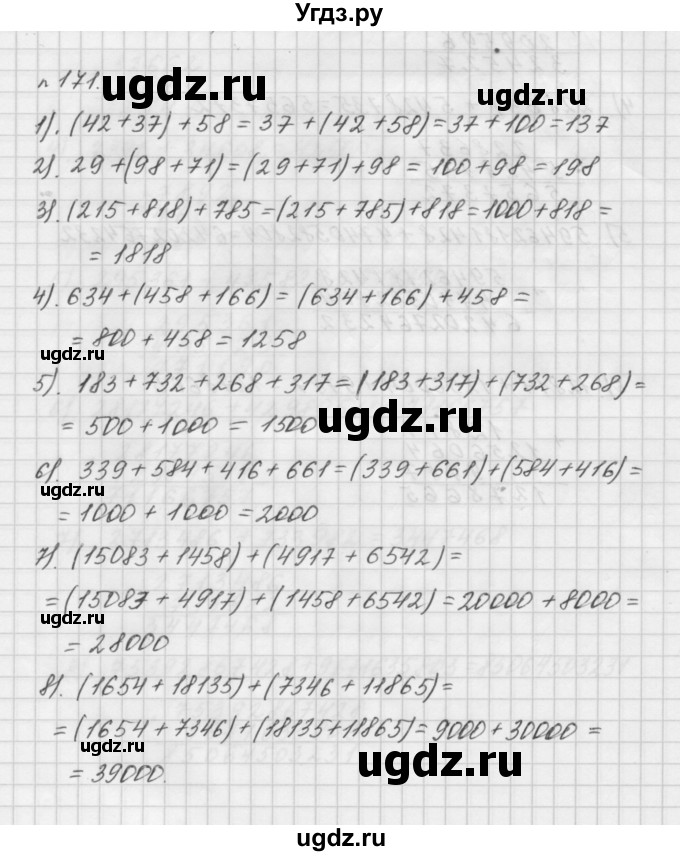 Угдз.ру
n 171.
1). (42+37)+58 = 37+(42+58)=37+100=137
2). 29+(98+71)=(29+71)+98 = 100+98 = 198
3). (215+818)+785=(215+785)+818=1000+818=
= 1818
4). 634+(458+166)=(634+166)+458=
= 800+458=1258
5). 183+732+268+317=(183+317)+(732+268)=
= 500+1000 = 1500
6). 339+584+416+661=(339+661)+(584+416)=
= 1000+1000=2000
7). (15083+1458)+(4917+6542)=
=(15083+4917)+(1458+6542)=20000+8000=
= 28000
8). (1654+18135)+(7346+11865)=
=(1654+7346)+(18135+11865)=9000+30000=
= 39000.
ugdz.ru
ugdz.ru
ugdz.ru
ugdz.ru
ugdz.ru
ugdz.ru
ugdz.ru
ugdz.ru